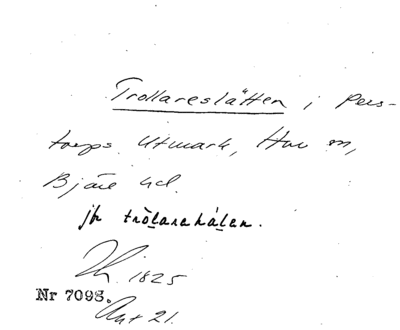 Trollareslätten i Pers-
torps Utmark, Hov sn,
Bjäre hd.
jfr trölarehålen.
1825
Nr 7098.
Ant 21.